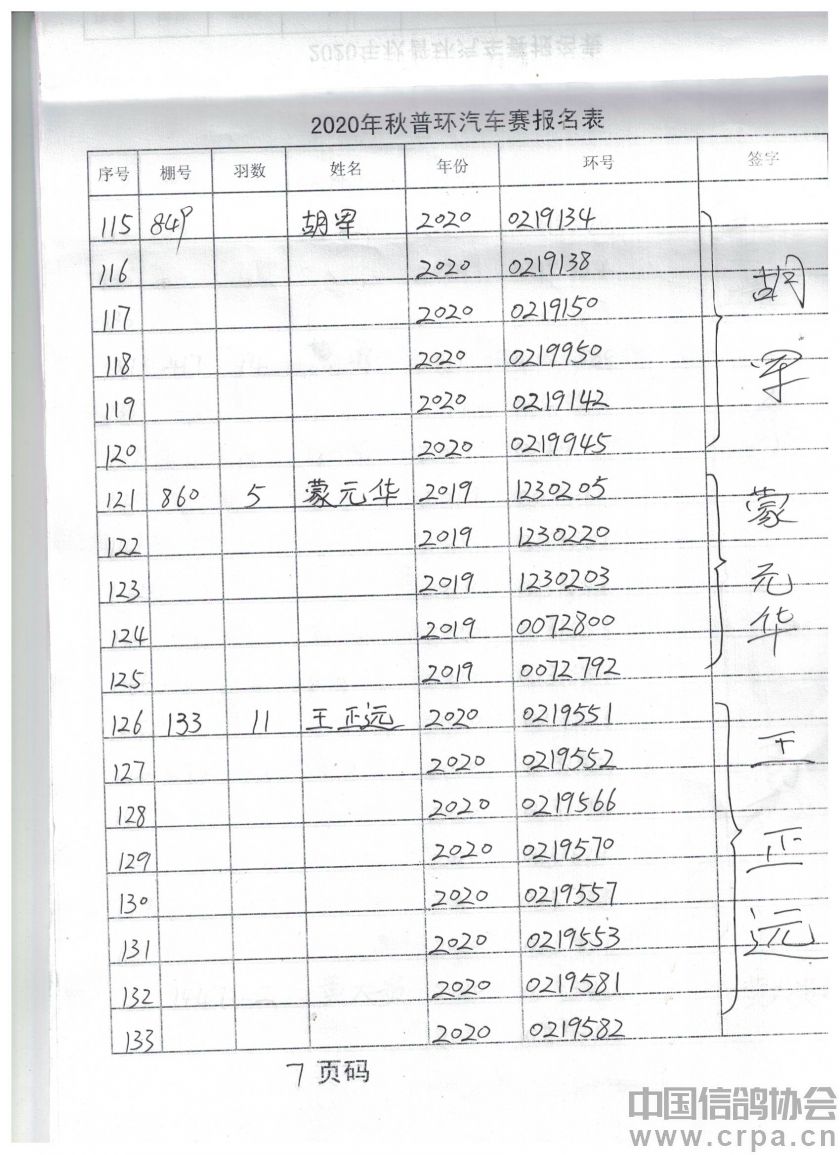 2020年秋普环汽车赛报名表
2020年秋普环汽车赛报名表
序号 棚号 羽数 姓名 年份 环号 签字
115 849 胡军 2020 0219134
116 2020 0219138
117 2020 0219150
118 2020 0219950
119 2020 0219142
120 2020 0219945
胡军
121 860 5 蒙元华 2019 1230205
122 2019 1230220
123 2019 1230203
124 2019 0072800
125 2019 0072792
蒙元华
126 133 11 王正远 2020 0219551
127 2020 0219552
128 2020 0219566
129 2020 0219570
130 2020 0219557
131 2020 0219553
132 2020 0219581
133 2020 0219582
王正远
7 页码
中国信鸽协会
www.crpa.cn